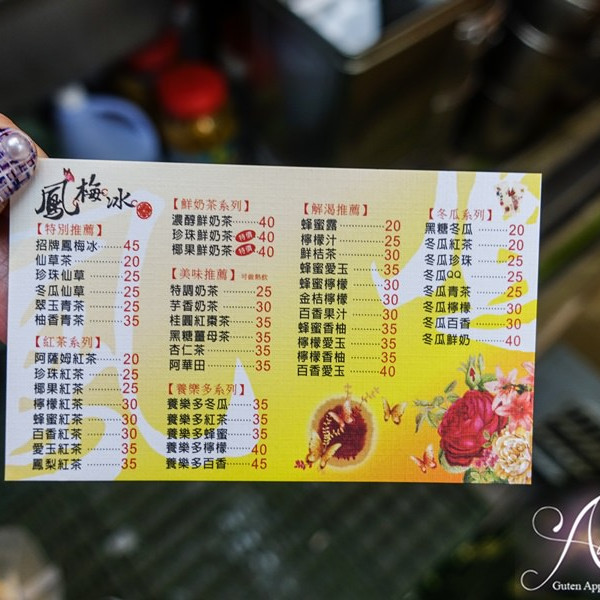 鳳梅冰
【特別推薦】
招牌鳳梅冰 45
仙草茶 20
珍珠仙草 25
冬瓜仙草 25
翠玉青茶 25
柚香青茶 35
【紅茶系列】
阿薩姆紅茶 20
珍珠紅茶 25
椰果紅茶 25
檸檬紅茶 30
蜂蜜紅茶 30
百香紅茶 30
愛玉紅茶 35
鳳梨紅茶 35
【鮮奶茶系列】
濃醇鮮奶茶 40
珍珠鮮奶茶 特價 40
椰果鮮奶茶 特價 40
【美味推薦】可做熱飲
特調奶茶 25
芋香奶茶 30
桂圓紅棗茶 35
黑糖薑母茶 35
杏仁茶 35
阿華田 35
【養樂多系列】
養樂多冬瓜 35
養樂多紅茶 35
養樂多蜂蜜 35
養樂多檸檬 40
養樂多百香 45
【解渴推薦】
蜂蜜露 20
檸檬汁 25
鮮桔茶 30
蜂蜜愛玉 35
蜂蜜檸檬 30
金桔檸檬 30
百香果汁 30
蜂蜜香柚 35
檸檬愛玉 35
檸檬香柚 35
百香愛玉 40
【冬瓜系列】
黑糖冬瓜 20
冬瓜紅茶 20
冬瓜珍珠 25
冬瓜QQ 25
冬瓜青茶 25
冬瓜檸檬 30
冬瓜百香 30
冬瓜鮮奶 40
Guten App